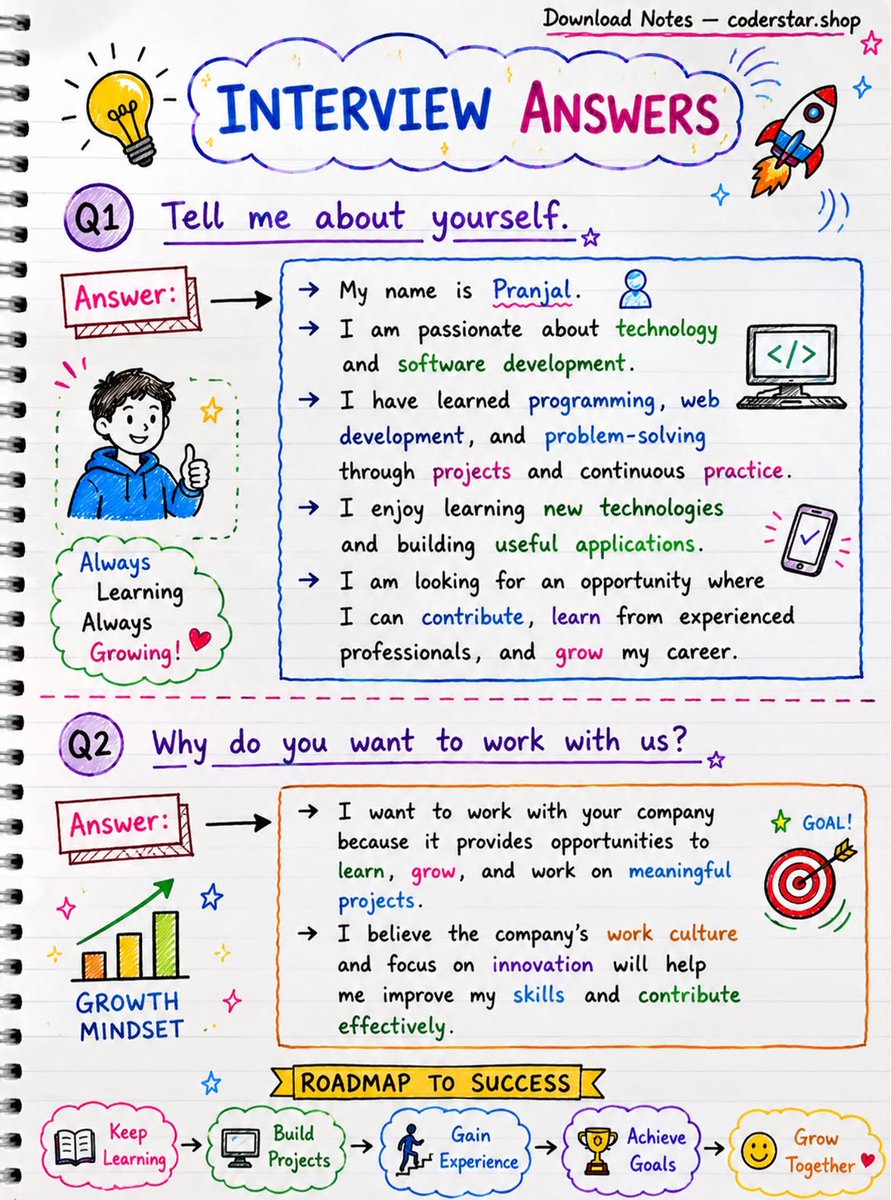 Download Notes — coderstar.shop
INTERVIEW ANSWERS
Q1 Tell me about yourself.
Answer:
→ My name is Pranjal.
→ I am passionate about technology
and software development.
</>
→ I have learned programming, web
development, and problem-solving
through projects and continuous practice.
→ I enjoy learning new technologies
and building useful applications.
→ I am looking for an opportunity where
I can contribute, learn from experienced
professionals, and grow my career.
Always
Learning
Always
Growing!
Q2 Why do you want to work with us?
Answer:
→ I want to work with your company
because it provides opportunities to
learn, grow, and work on meaningful
projects.
→ I believe the company's work culture
and focus on innovation will help
me improve my skills and contribute
effectively.
GOAL!
GROWTH
MINDSET
ROADMAP TO SUCCESS
Keep
Learning
→
Build
Projects
→
Gain
Experience
→
Achieve
Goals
→
Grow
Together